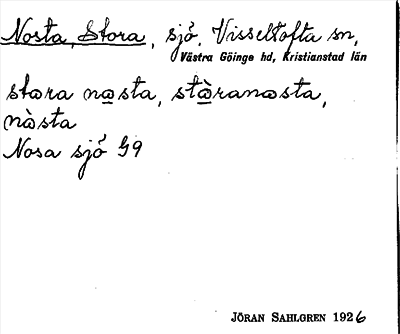 Nosta, Stora, sjö. Visseltofta sn,
Västra Göinge hd, Kristianstad län
stora nosta, stòranosta,
nòsta
Nosa sjö G9
JÖRAN SAHLGREN 1926